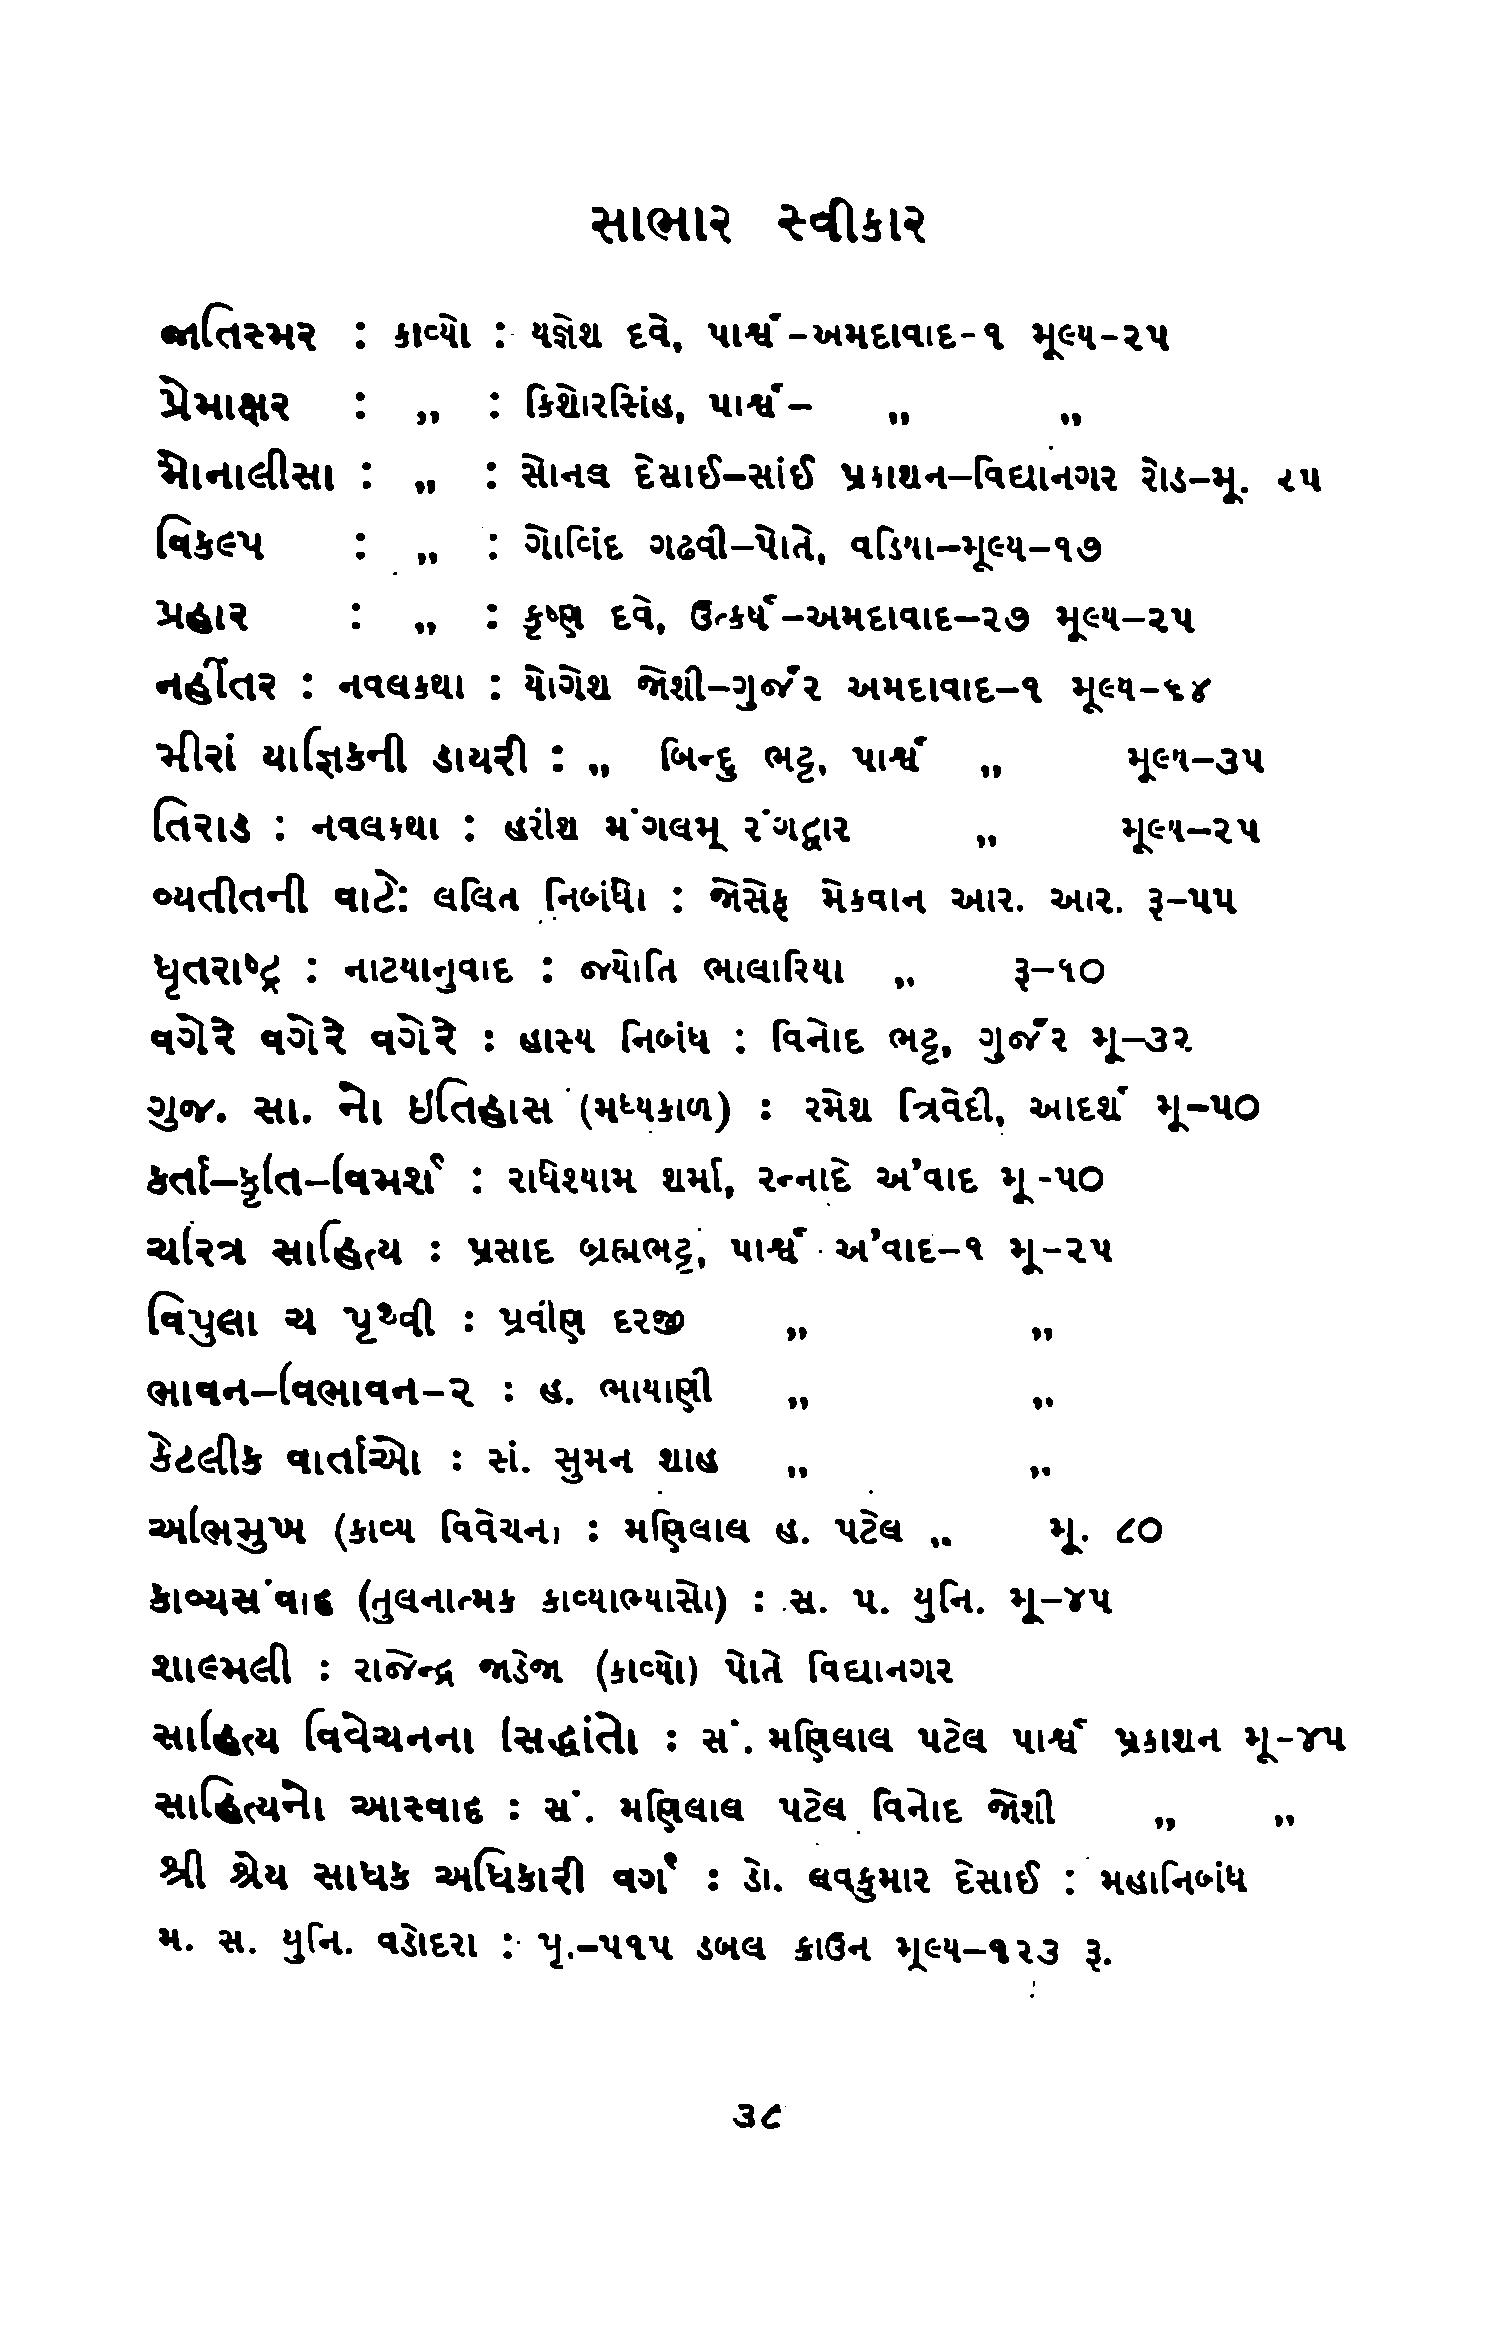 સાભાર સ્વીકાર
જાતિસ્મર : કાવ્યો : યજ્ઞેશ દવે, પાર્શ્વ-અમદાવાદ-૧ મૂલ્ય-૨૫
પ્રેમાક્ષર : ,, : કિશોરસિંહ, પાર્શ્વ- ,, ,,
મોનાલીસા : ,, : સોનલ દેસાઈ-સાંઈ પ્રકાશન-વિદ્યાનગર રોડ-મૂ. ૨૫
વિકલ્પ : ,, : ગોવિંદ ગઢવી-પોતે, વડિયા-મૂલ્ય-૧૭
પ્રહાર : ,, : કૃષ્ણ દવે, ઉત્કર્ષ-અમદાવાદ-૨૭ મૂલ્ય-૨૫
નહીંતર : નવલકથા : યોગેશ જોશી-ગુર્જર અમદાવાદ-૧ મૂલ્ય-૬૪
મીરાં યાજ્ઞિકની ડાયરી : ,, બિન્દુ ભટ્ટ, પાર્શ્વ ,, મૂલ્ય-૩૫
તિરાડ : નવલકથા : હરીશ મંગલમ્ રંગદ્વાર ,, મૂલ્ય-૨૫
વ્યતીતની વાટે: લલિત નિબંધો : જોસેફ મેકવાન આર. આર. રૂ-૫૫
ધૃતરાષ્ટ્ર : નાટયાનુવાદ : જ્યોતિ ભાલારિયા ,, રૂ-૬૦
વગેરે વગેરે વગેરે : હાસ્ય નિબંધ : વિનોદ ભટ્ટ, ગુર્જર મૂ-૩૨
ગુજ. સા. નો ઇતિહાસ (મધ્યકાળ) : રમેશ ત્રિવેદી, આદર્શ મૂ-૫૦
કર્તા-કૃતિ-વિમર્શ : રાધેશ્યામ શર્મા, રન્નાદે અ'વાદ મૂ-૫૦
ચરિત્ર સાહિત્ય : પ્રસાદ બ્રહ્મભટ્ટ, પાર્શ્વ અ'વાદ-૧ મૂ-૨૫
વિપુલા ચ પૃથ્વી : પ્રવીણ દરજી ,, ,,
ભાવન-વિભાવન-૨ : હ. ભાયાણી ,, ,,
કેટલીક વાર્તાઓ : સં. સુમન શાહ ,, ,,
અભિમુખ (કાવ્ય વિવેચન) : મણિલાલ હ. પટેલ ,, મૂ. ૮૦
કાવ્યસંવાદ (તુલનાત્મક કાવ્યાભ્યાસો) : સ. પ. યુનિ. મૂ-૪૫
શાલ્મલી : રાજેન્દ્ર જાડેજા (કાવ્યો) પોતે વિદ્યાનગર
સાહિત્ય વિવેચનના સિદ્ધાંતો : સં. મણિલાલ પટેલ પાર્શ્વ પ્રકાશન મૂ-૪૫
સાહિત્યનો આસ્વાદ : સં. મણિલાલ પટેલ વિનોદ જોશી ,, ,,
શ્રી શ્રેય સાધક અધિકારી વર્ગ : ડો. લવકુમાર દેસાઈ : મહાનિબંધ
મ. સ. યુનિ. વડોદરા : પૃ.-૫૧૫ ડબલ ક્રાઉન મૂલ્ય-૧૨૩ રૂ.
૩૮